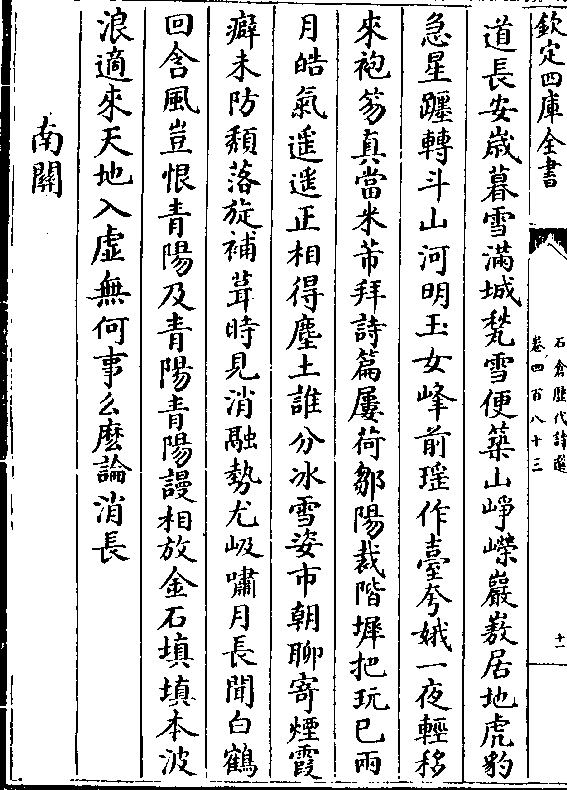 欽定四庫全書
石倉歷代詩選
卷四百八十三
十一
道長安歳暮雪滿城甃雪便築山崢嶸巖嶅居地虎豹
急星躔轉斗山河明玉女峰前瑶作臺夸娥一夜輕移
來袍笏真當米芾拜詩篇屢荷鄒陽裁階墀把玩已兩
月皓氣遥遥正相得塵土誰分冰雪姿市朝聊寄煙霞
癖未防頽落旋補葺時見消融勢尤岌嘯月長聞白鶴
回含風豈恨青陽及青陽青陽謾相放金石填填本波
浪適來天地入虛無何事么麽論消長
南關